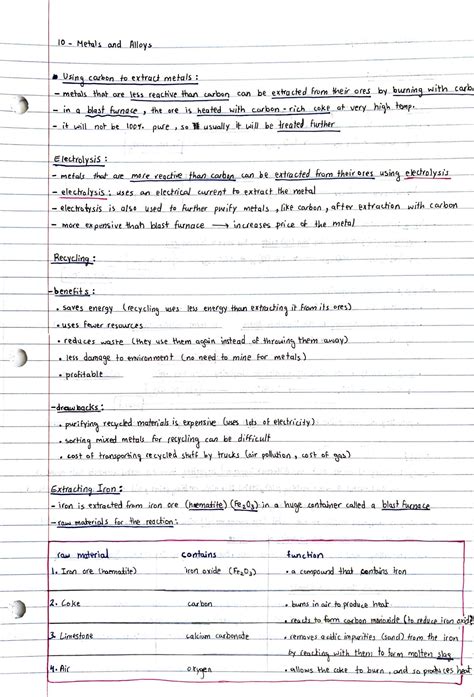 10 - Metals and Alloys
• Using carbon to extract metals :
- metals that are less reactive than carbon can be extracted from their ores by burning with carbo
- in a blast furnace , the ore is heated with carbon-rich coke at very high temp.
- it will not be 100% pure , so usually it will be treated further
Electrolysis :
- metals that are more reactive than carbon can be extracted from their ores using electrolysis
- electrolysis : uses an electrical current to extract the metal
- electrolysis is also used to further purify metals , like carbon , after extraction with carbon
- more expensive than blast furnace → increases price of the metal
Recycling :
- benefits :
• saves energy (recycling uses less energy than extracting it from its ores)
• uses fewer resources
• reduces waste (they use them again instead of throwing them away)
• less damage to environment (no need to mine for metals)
• profitable
- drawbacks :
• purifying recycled materials is expensive (uses lots of electricity)
• sorting mixed metals for recycling can be difficult
• cost of transporting recycled stuff by trucks (air pollution , cost of gas)
Extracting Iron :
- iron is extracted from iron ore (haematite) (Fe₂O₃) in a huge container called a blast furnace
- raw materials for the reaction :
raw material contains function
1. Iron ore (haematite) iron oxide (Fe₂O₃) • a compound that contains iron
2. Coke carbon • burns in air to produce heat
• reacts to form carbon monoxide (to reduce iron oxide)
3. Limestone calcium carbonate • removes acidic impurities (sand) from the iron
by reacting with them to form molten slag
4. Air oxygen • allows the coke to burn , and so produces heat